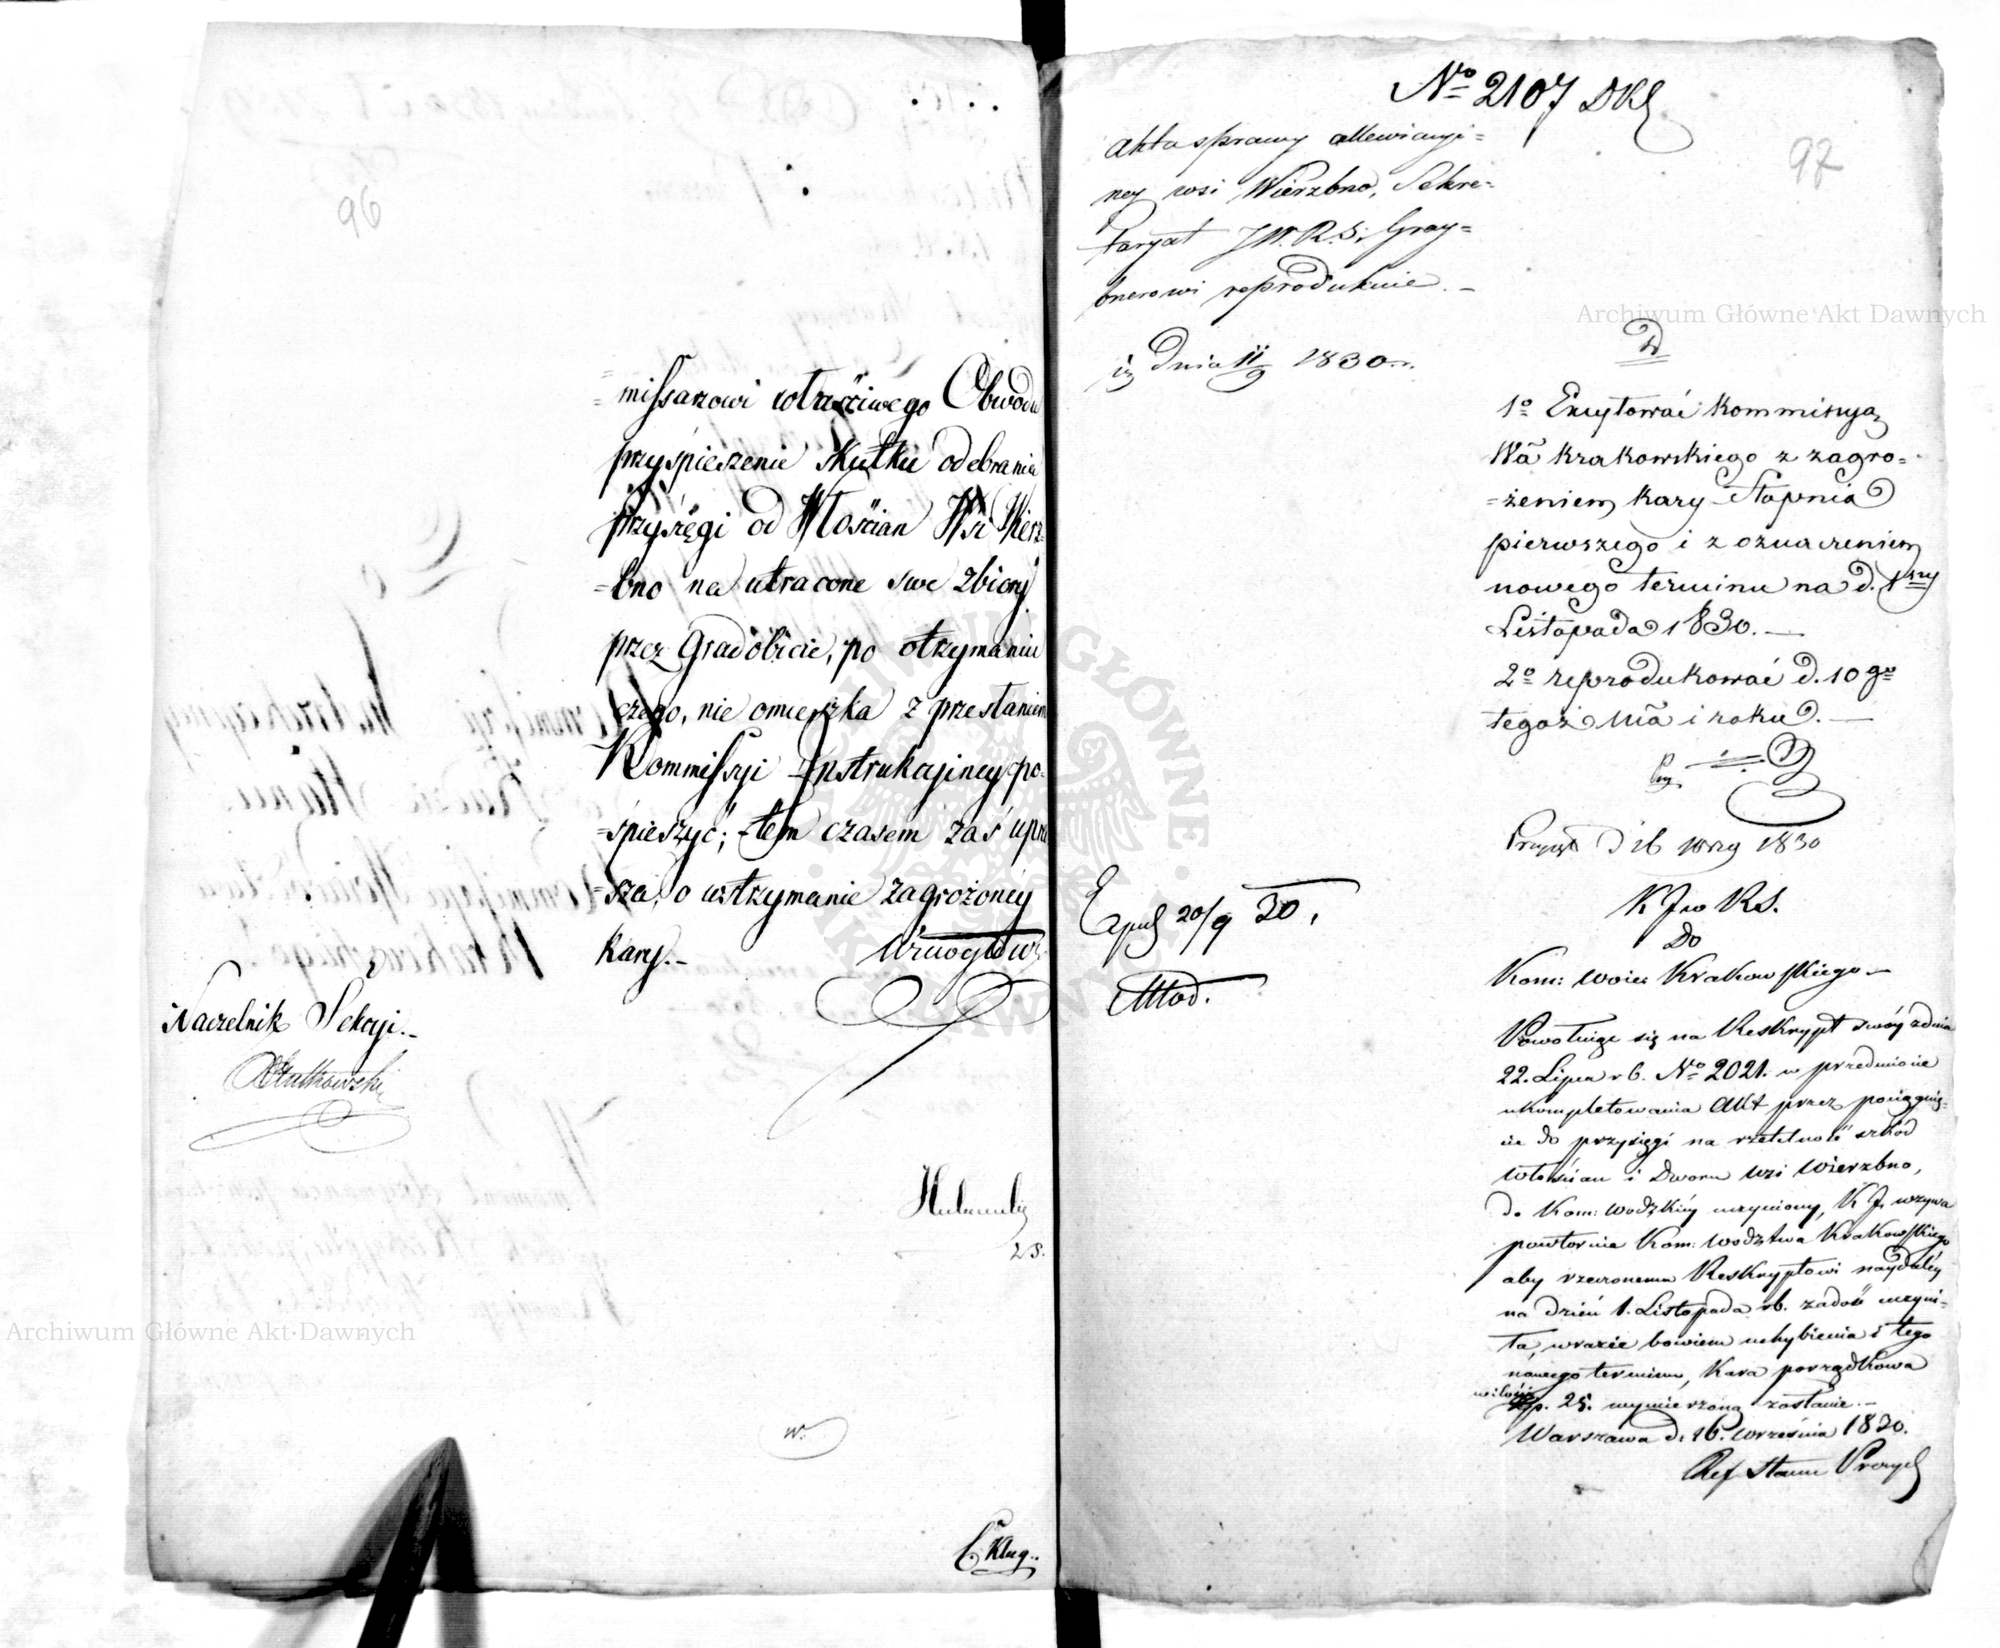 96
=missarzowi właściwego Obwodu
przyśpieszenie skutku odebrania
przysięgi od Włościan Wsi Wierz-
=bno na utracone swe zbiory
przez Gradobicie, po otrzymaniu
czego, nie omieszka z przesłaniem
Kommissyi Instrukcyiney po-
=śpieszyć; tem czasem zaś upra
=sza, o wstrzymanie zagrożoney
kary.-
Naczelnik Sekcyi.-
w.
No 2107 DKJ
97
Akta sprawy allewiacyi=
ney wsi Wierzbno, Sekre=
taryat JW. R. S. Gray=
bnerowi reprodukuie. -
dnia 11/9 1830 r.
D
1o Excytować kommissyą
Wa krakowskiego z zagro=
=żeniem kary Stopnia
pierwszego i z oznaczeniem
nowego terminu na d. 1szy
Listopada 1830. -
2o reprodukować d. 10go
tegoż Ma i roku. -
Przyięto d 16 wrzs 1830
K J w R S.
Do
Kom: Woiew Krakowskiego -
Powołuiąc się na Reskrypt swóy z dnia
22. Lipca r b. No 2021. w przedmiocie
ukompletowania Akt przez pociągnię=
cie do przysięgi na rzetelność szkód
włościan i Dworu wsi Wierzbno,
do Kom: Wodzkiey uczyniony, K J. wzywa
powtórnie Kom: Wodztwa Krakowskiego
aby rzeczonemu Reskryptowi naydaléy
na dzień 1. Listopada rb. zadość uczyni=
ła, w razie bowiem uchybienia i tego
nowego terminu, Kara porządkowa
w ilości
Złp. 25. wymierzoną zostanie. -
Warszawa d. 16. września 1830.
Ref Stanu
Exp 20/9 30.
C Klug..
Archiwum Główne Akt Dawnych
Archiwum Główne Akt Dawnych
ARCHIWUM GŁÓWNE AKT DAWNYCH